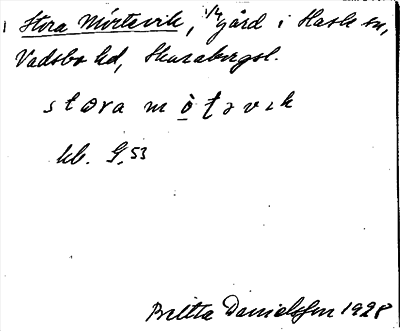 Stora Mörtevik, 1/4 gård i Hassle sn,
Vadsbo hd, Skaraborgsl.
stora mò̱ţəvɩk
kb. G. 53
Britta Danielsson 1928